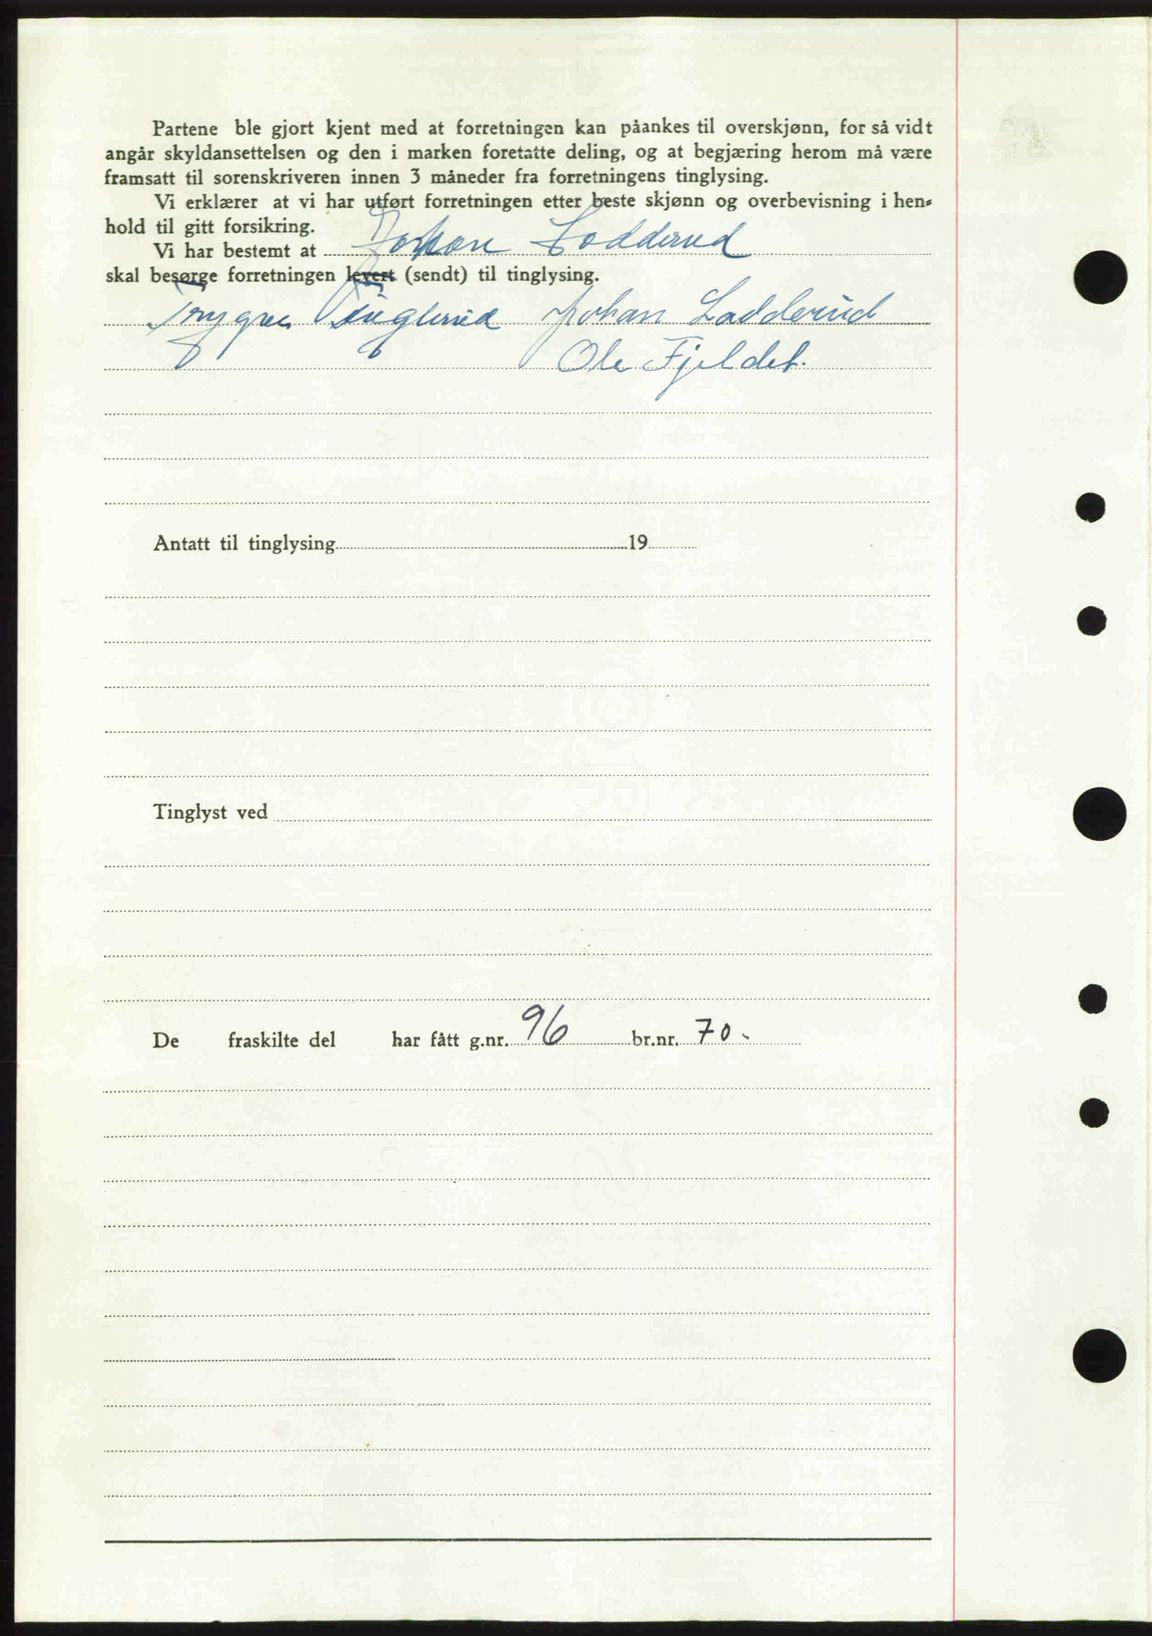 Partene ble gjort kjent med at forretningen kan påankes til overskjønn, for så vidt
angår skyldansettelsen og den i marken foretatte deling, og at begjæring herom må være
framsatt til sorenskriveren innen 3 måneder fra forretningens tinglysing.
Vi erklærer at vi har utført forretningen etter beste skjønn og overbevisning i hen-
hold til gitt forsikring.
Vi har bestemt at Johan Lodderud
skal besørge forretningen levert (sendt) til tinglysing.
Johan Ladderud
Ole Fjeldet.
Antatt til tinglysing 19
Tinglyst ved
De fraskilte del har fått g.nr. 96 br.nr. 70.